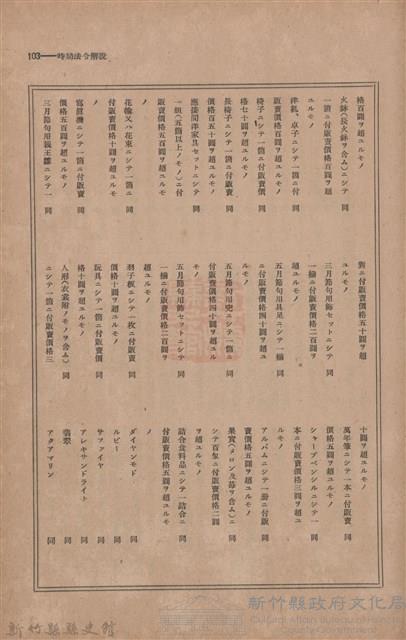 103——時局法令解說
格百圓ヲ超ユルモノ
火鉢(長火鉢ヲ含ム)ニシテ 同
一箇ニ付販賣價格百圓ヲ超
ユルモノ
洋机、卓子ニシテ一箇ニ付 同
販賣價格百圓ヲ超ユルモノ
椅子ニシテ一箇ニ付販賣價 同
格七十圓ヲ超ユルモノ
長椅子ニシテ一箇ニ付販賣 同
價格百五十圓ヲ超ユルモノ
應接間洋家具セットニシテ 同
一組(五箇以上ノモノ)ニ付
販賣價格五百圓ヲ超ユルモ
ノ
花輪又ハ花束ニシテ一箇ニ 同
付販賣價格十圓ヲ超ユルモ
ノ
寫眞機ニシテ一箇ニ付販賣 同
價格五百圓ヲ超ユルモノ
三月節句用親王雛ニシテ一 同
對ニ付販賣價格五十圓ヲ超
ユルモノ
三月節句用飾セットニシテ 同
一揃ニ付販賣價格二百圓ヲ
超ユルモノ
五月節句用具足ニシテ一揃 同
ニ付販賣價格四十圓ヲ超ユ
ルモノ
五月節句用兜ニシテ一箇ニ 同
付販賣價格四十圓ヲ超ユル
モノ
五月節句用飾セットニシテ 同
一揃ニ付販賣價格二百圓ヲ
超ユルモノ
羽子板ニシテ一枚ニ付販賣 同
價格十圓ヲ超ユルモノ
玩具ニシテ一箇ニ付販賣價 同
格十圓ヲ超ユルモノ
人形(衣裳附ノモノヲ含ム) 同
ニシテ一箇ニ付販賣價格三
十圓ヲ超ユルモノ
萬年筆ニシテ一本ニ付販賣 同
價格五圓ヲ超ユルモノ
シャープペンシルニシテ一 同
本ニ付販賣價格三圓ヲ超ユ
ルモノ
アルバムニシテ一册ニ付販 同
賣價格五圓ヲ超ユルモノ
果實(メロン及苺ヲ含ム)ニ 同
シテ百匁ニ付販賣價格二圓
ヲ超ユルモノ
詰合食料品ニシテ一詰合ニ 同
付販賣價格五圓ヲ超ユルモ
ノ
ダイヤモンド 同
ルビー 同
サファイヤ 同
アレキサンドライト 同
翡翠 同
アクアマリン 同
新竹縣縣史館
新竹縣政府文化局
Cultural Affairs Bureau of Hsinchu